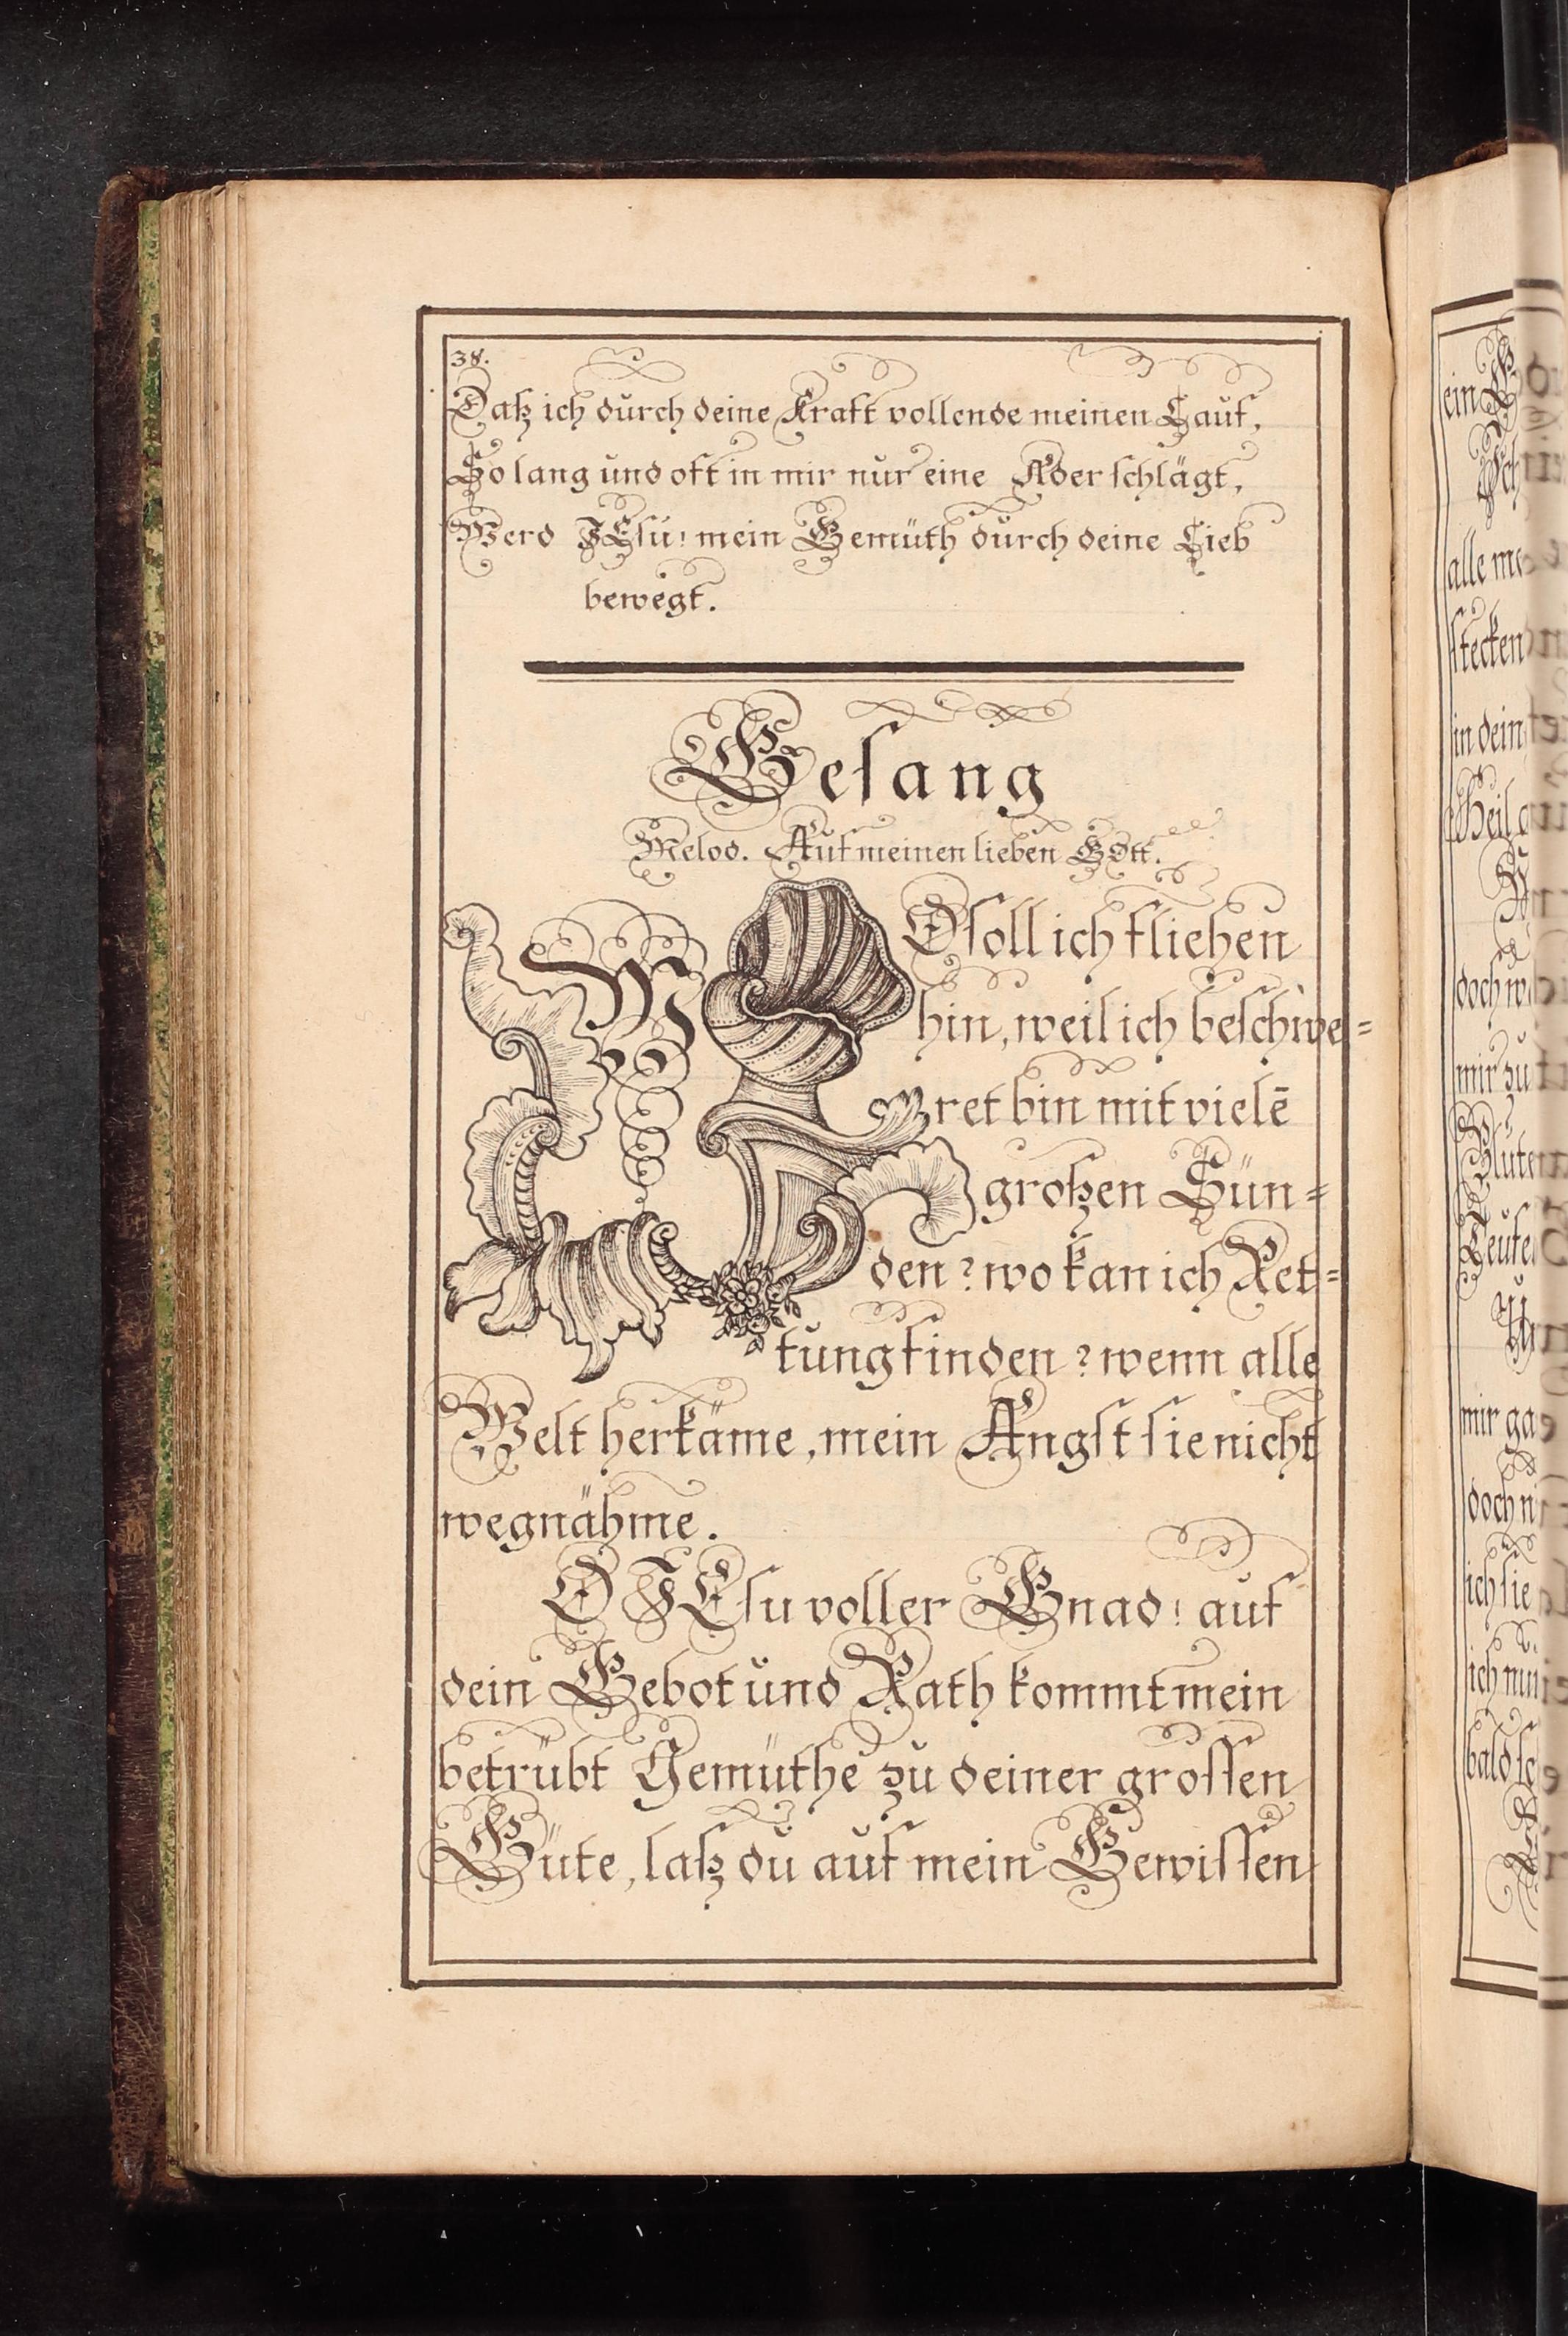 38.
Daß ich durch deine Kraft vollende meinen Lauf,
So lang und oft in mir nur eine Ader schlägt,
Werd JEsu! mein Gemüth durch deine Lieb
bewegt.
Gesang
Melod. Auf meinen lieben GOtt.
WO soll ich fliehen
hin, weil ich beschwe-
ret bin mit vielē
großen Sün-
den? wo kan ich Ret-
tung finden? wenn alle
Welt herkäme, mein Angst sie nicht
wegnähme.
O JEsu voller Gnad! auf
dein Gebot und Rath kommt mein
betrübt Gemüthe zu deiner grossen
Güte, laß du auf mein Gewissen
ein
Ich
alle
stecken
in dein
Heil
doch
mir zu
Blute
Teufe
mir
doch
ich sie
ich nun
bald